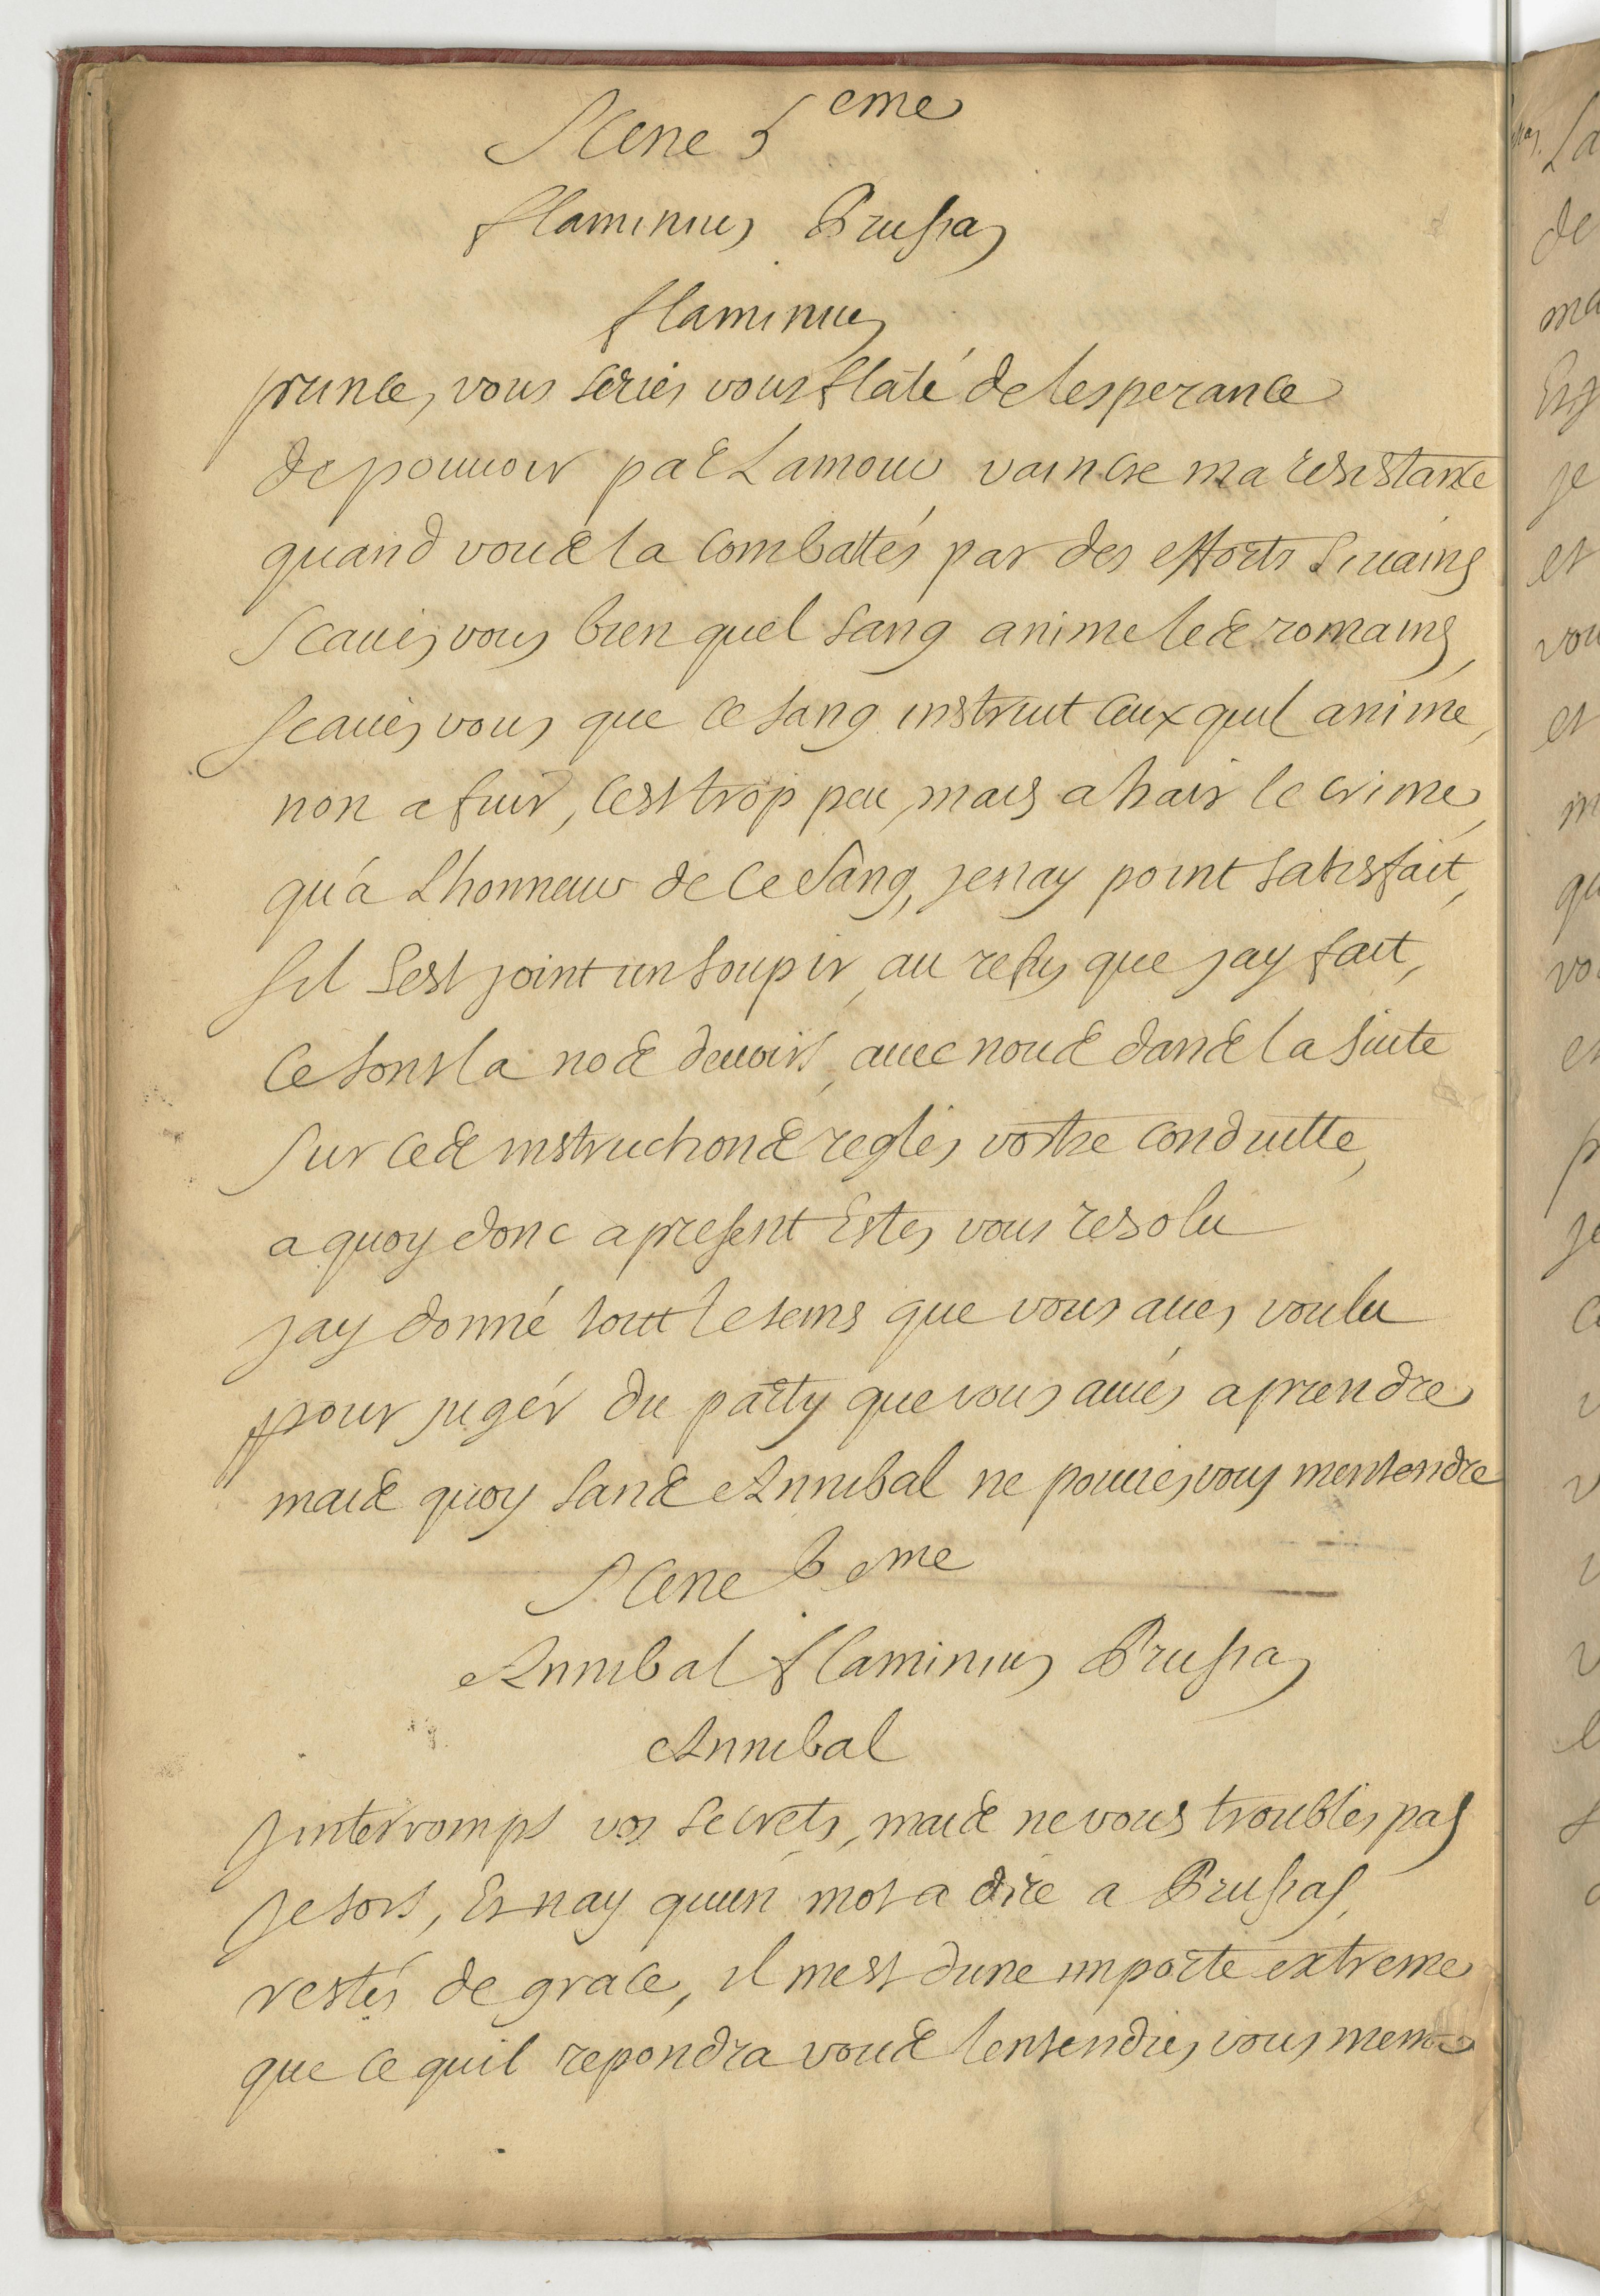 Scene 5eme
flaminius Prusias
flaminius
prince, vous series vous flaté de lesperance
de pouuoir par Lamour vaincre ma resistance
quand vous la combattés par des efforts si uains
scaues vous bien quel sang anime les romains,
scaues vous que ce sang instruit ceux quil anime,
non a fuir, cest trop peu, mais a hair le crime,
qu'a Lhonneur de ce sang, je nay point satisfait,
sil sest joint un soupir, au refus que jay fait,
ce sont la nos deuoirs, auec nous dans la suite
sur ces instructions reglés vostre conduitte,
a quoy donc a present Estes vous resolu
jay donné tout le tems que vous aues voulu
pour juger du party que vous auiés a prendre
mais quoy sans Annibal ne pouues vous mentendre
Scene 6eme
Annibal flaminius Prusias
Annibal
Jinterromps vos secrets, mais ne vous troublés pas
Je sors, Et nay quun mot a dire a Prusias,
restés de grace, il mest dune importe extreme
que ce quil repondra vous lentendies vous meme
La
de
ma
je
et
vou
et
qu